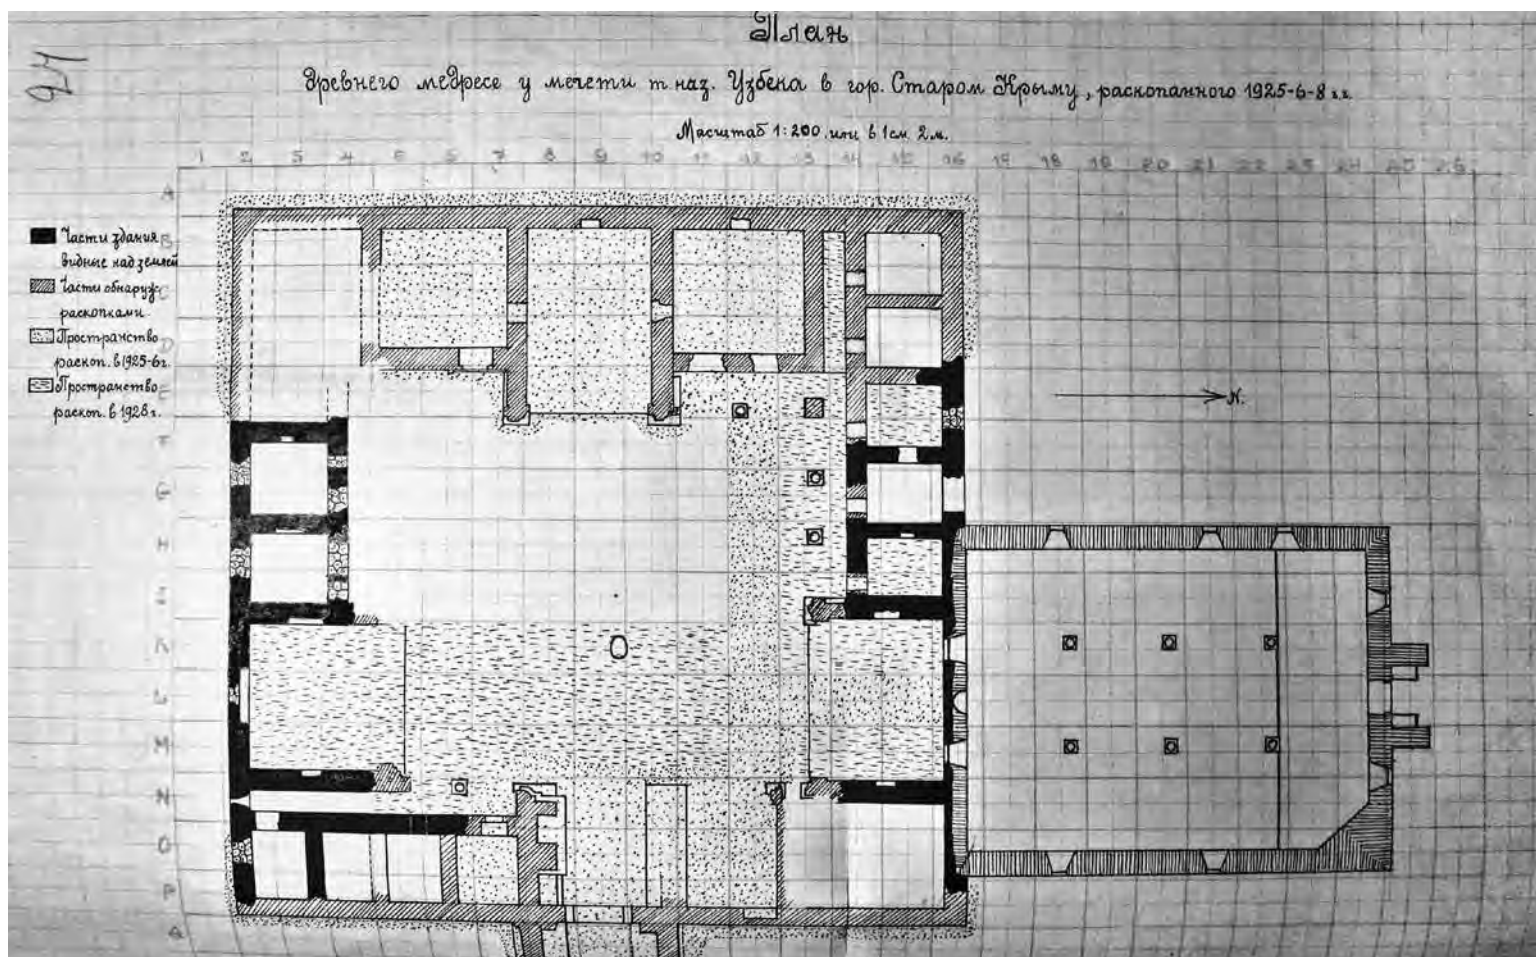 План
Древнего медресе у мечети т. наз. Узбека в гор. Старом Крыму, раскопанного 1925-6-8 г.г.
Масштаб 1:200. или в 1 см. 2 м.
1 2 3 4 5 6 7 8 9 10 11 12 13 14 15 16 17 18 19 20 21 22 23 24 25 26
A
B
C
D
E
F
G
H
I
K
L
M
N
O
P
Q
Части здания
видные над землей
Части обнаруж.
раскопками
Пространство
раскоп. в 1925-6 г.
Пространство
раскоп. в 1928 г.
N.